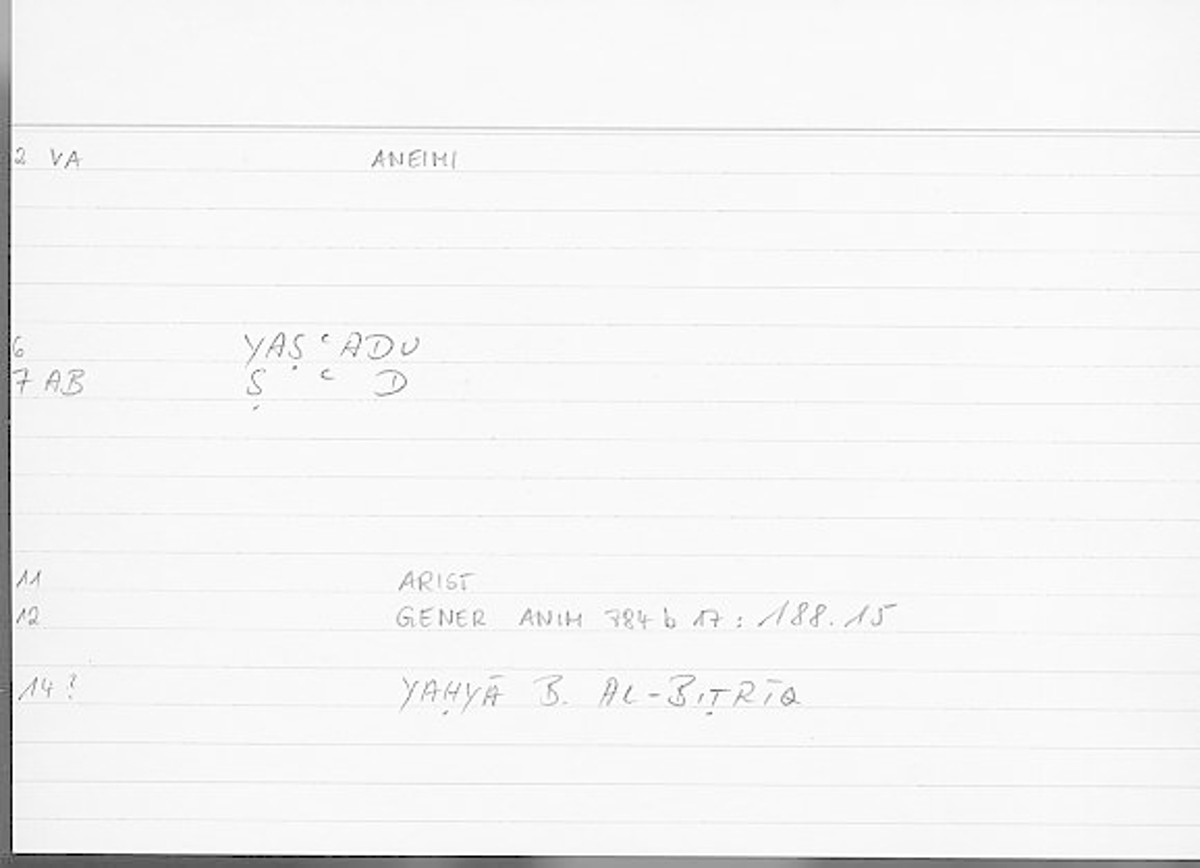 2 VA ANEIMI
6 YAṢ ʿADU
7 AB Ṣ ʿ D
11 ARIST
12 GENER ANIM 784 b 17 : 188.15
14 ? YAḤYĀ B. AL-BIṬRĪQ